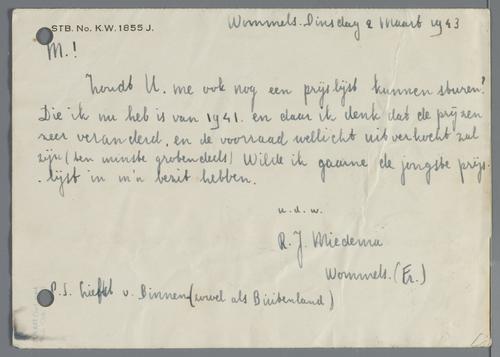 STB. No. K.W. 1855 J.
Wommels. Dinsdag 2 Maart 1943
M.!
Zoudt U. me ook nog een prijslijst kunnen sturen?
Die ik nu heb is van 1941. en daar ik denk dat de prijzen
zeer veranderd, en de voorraad wellicht uitverkocht zal
zijn (ten minste grotendeels) Wilde ik gaarne de jongste prijs
-lijst in m'n bezit hebben.
u.d.w.
R. J. Miedema
Wommels. (Fr.)
P.S. Liefst v. Binnen (zowel als Buitenland)